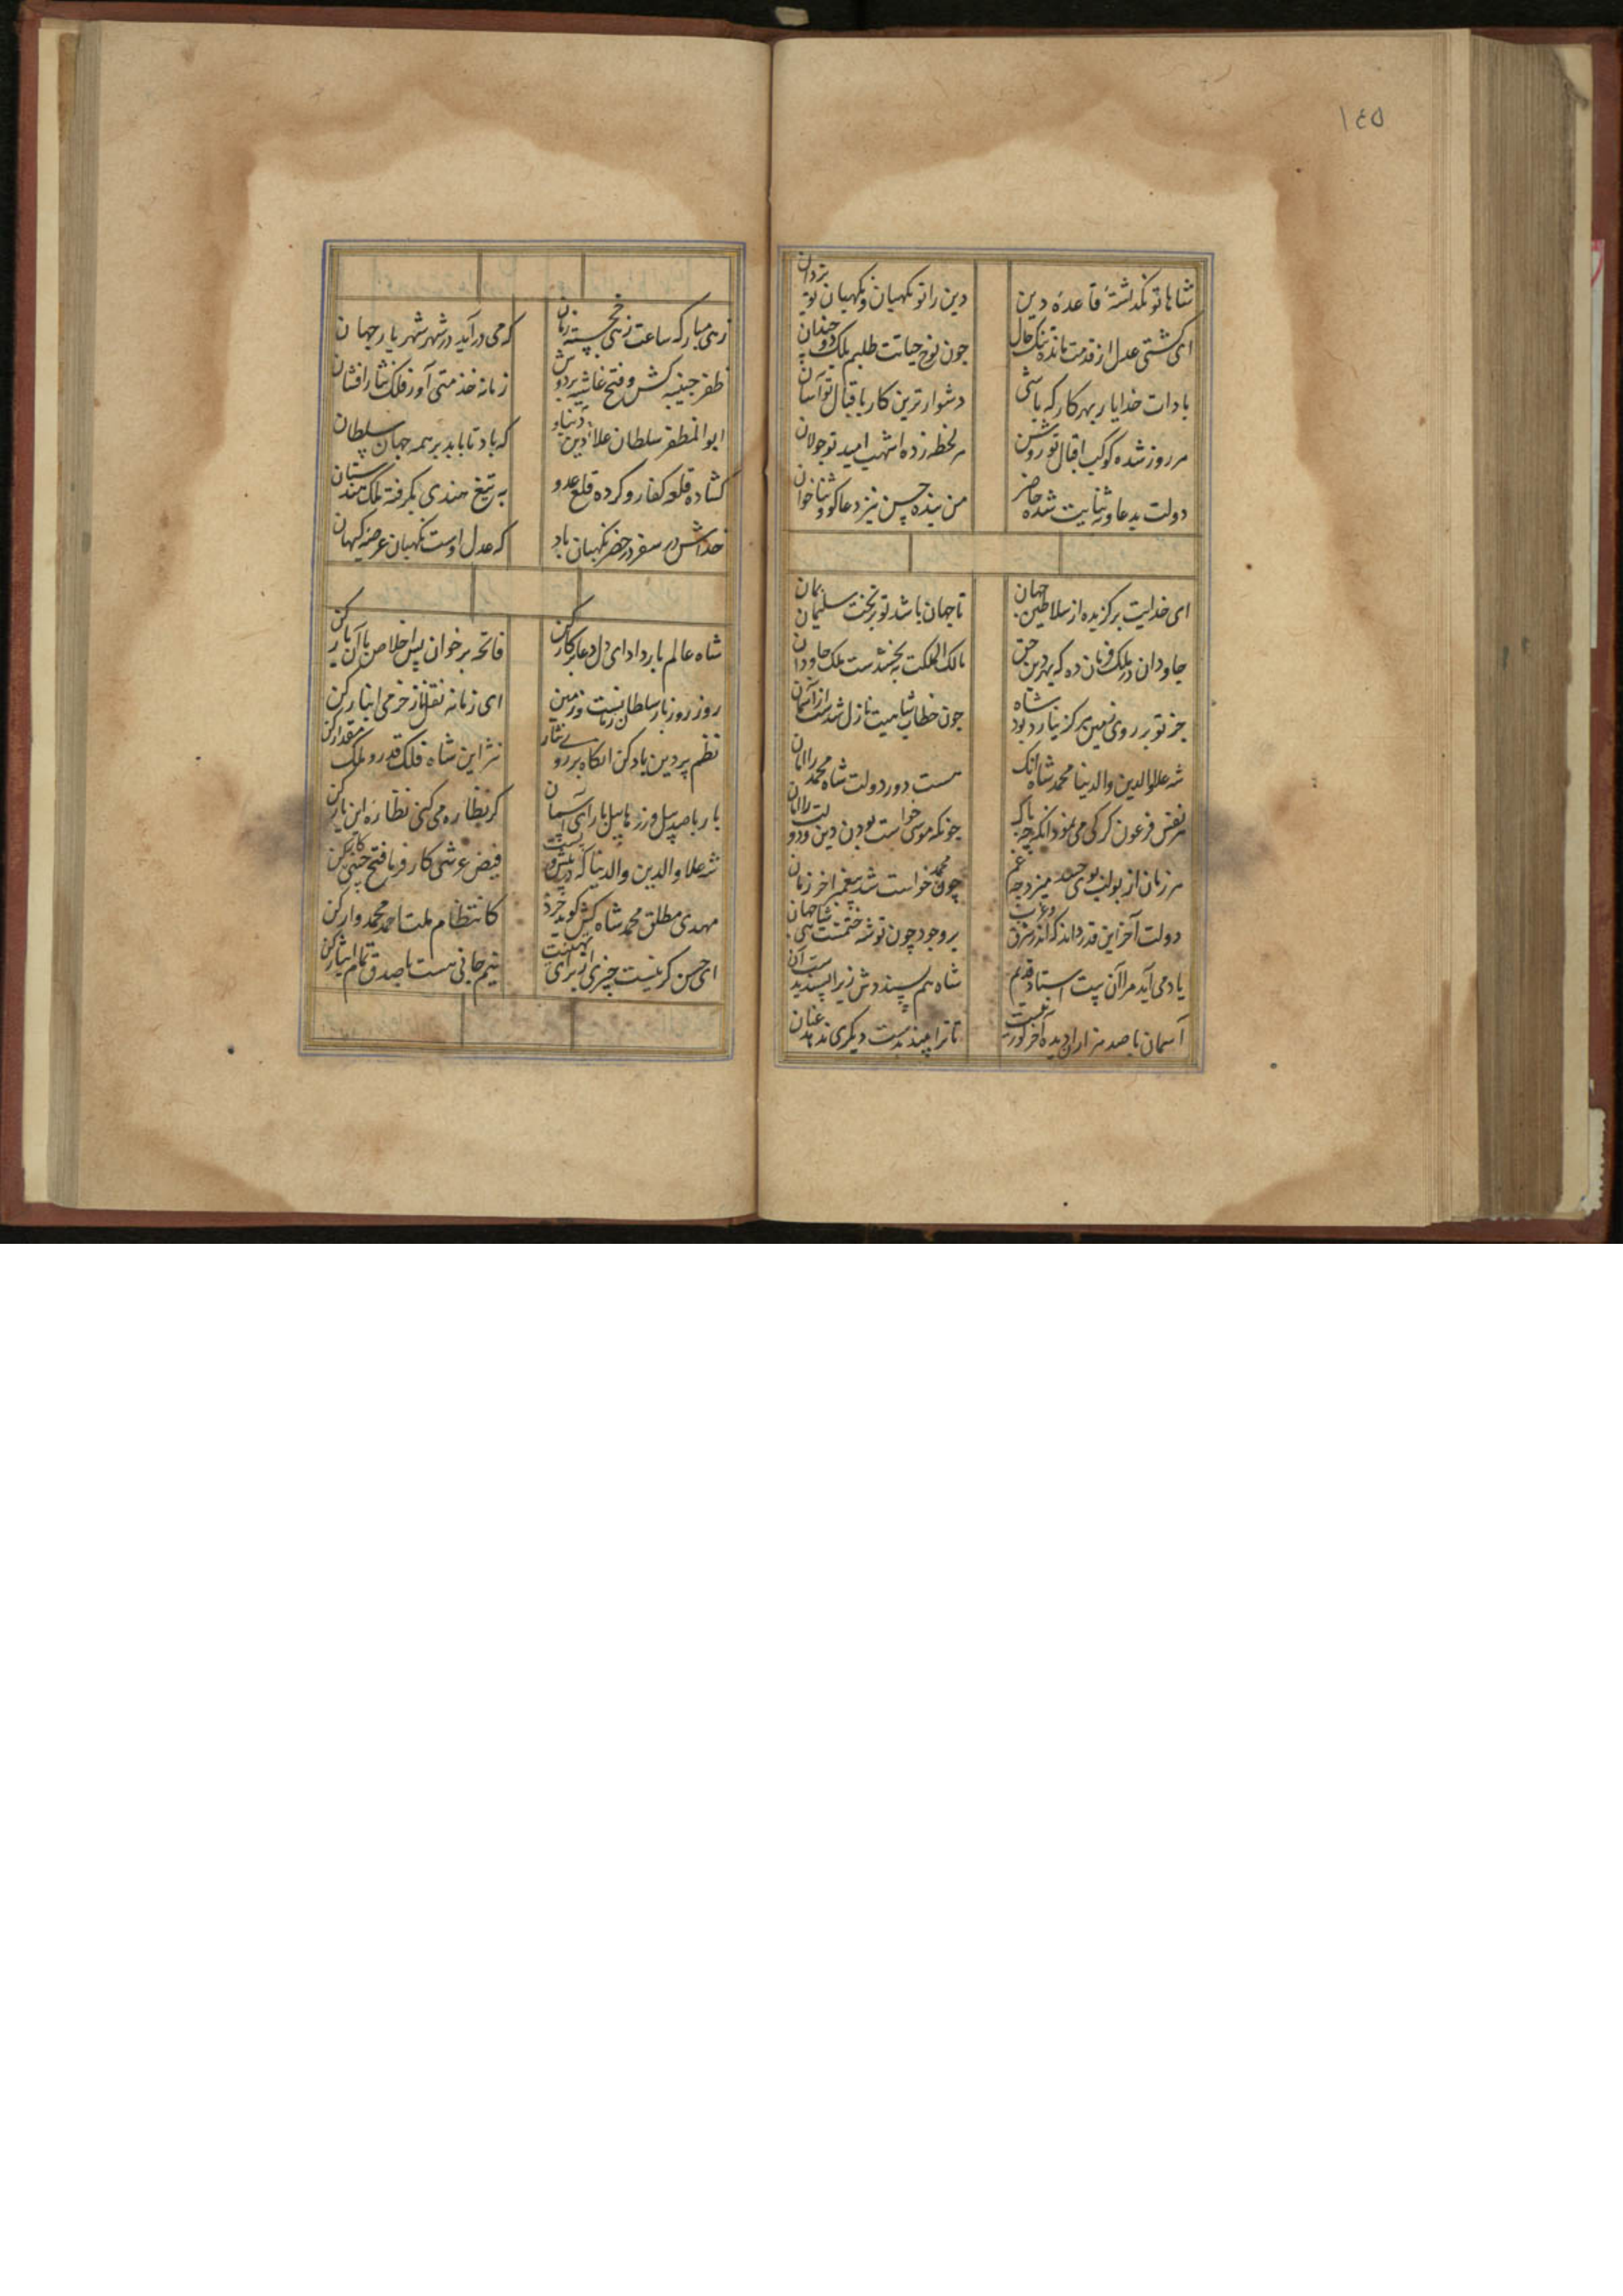 ١٤٥
شاها تو نگدشتهٔ قاعدهٔ دین
دین را تو نگهبان و نگهبان تو یزدان
ای کشتی عدل از قدمت مانده تنک حال
چون نوح حیاتت طلبم ملک دو چندان
بادات خدا یار بهر کار که باشی
دشوارترین کار باقبال تو آسان
هر روز شده کوکب اقبال تو روشن
هر لحظه زده اشهب امید تو جولان
دولت بدعا و ثنایت شده حاضر
من بنده حسن نیز دعاکو و ثناخوان
ای خدایت برکزیده از سلاطین جهان
تا جهان باشد تو بر تخت سلیمان بمان
جاودان در ملک فرمان ده که بهر دین حق
مالک الملکت ببخشیدست ملک جاودان
جز تو بر روی زمین هرکز نیارد بود شاه
چون خطاب شاهیت نازل شدست از آسمان
شه علاء الدین والدنیا محمد شاه انک
هست دور دولت شاه محمد را امان
هر نفس فرعون کرکی می نمود انکیز چه باک
چونکه موسی خواست بودن دین و دولت را امان
هر زمان از بولهب بوی حسد میزد چه غم
چون محمد خواست شد پیغمبر آخر زمان
دولت آخر این قدر داند که اندر شرق و غرب
بر وجود چون تو شه ختمست شاهی جهان
یاد می آید مرا آن بیت استاد قدیم
شاه هم بپسنددش زیرا پسندیدست آن
آسمان با صد هزاران دیده آخر کور نیست
تا ترا بیند بدست دیکری ندهد عنان
زهی مبارک ساعت زهی خجسته زمان
که می درآید در شهر شهریار جهان
ظفر جنیبه کش و فتح غاشیه بر دوش
زمانه خذمتی آور فلک نثار افشان
ابوالمظفر سلطان علاء دنیا و دین
که باد تا بابد بر همه جهان سلطان
کشاده قلعه کفار و کرده قلع عدو
به تیغ هندی بکرفته ملک هندستان
خداش در سفر و در حضر نکهبان باد
که عدل اوست نکهبان عرصه کیهان
شاه عالم بار داد ای دل دعا بر کار کن
فاتحه بر خوان پس اخلاص با آن یار کن
روز روز بار سلطانست و زمین
ای زمانه نقل از خرمی انبار کن
نظم پروین یاد کن انکاه بر رو نثار
نثر این شاه فلک قدر و ملک مقدار کن
بار با صد پیل و رزها پیل بار ای آسمان
کر نظاره می کنی نظاره این بار کن
شه علاء الدین والدنیا که در پیش و پست
فیض عرشی کار فرما فتح چینی کار کن
مهدی مطلق محمد شاه کش کوید خرد
کانتظام ملت احمد محمدوار کن
ای حسن کر نیست چیزی از برای تهنیت
نیم جانی هست با صدق تمام ایثار کن